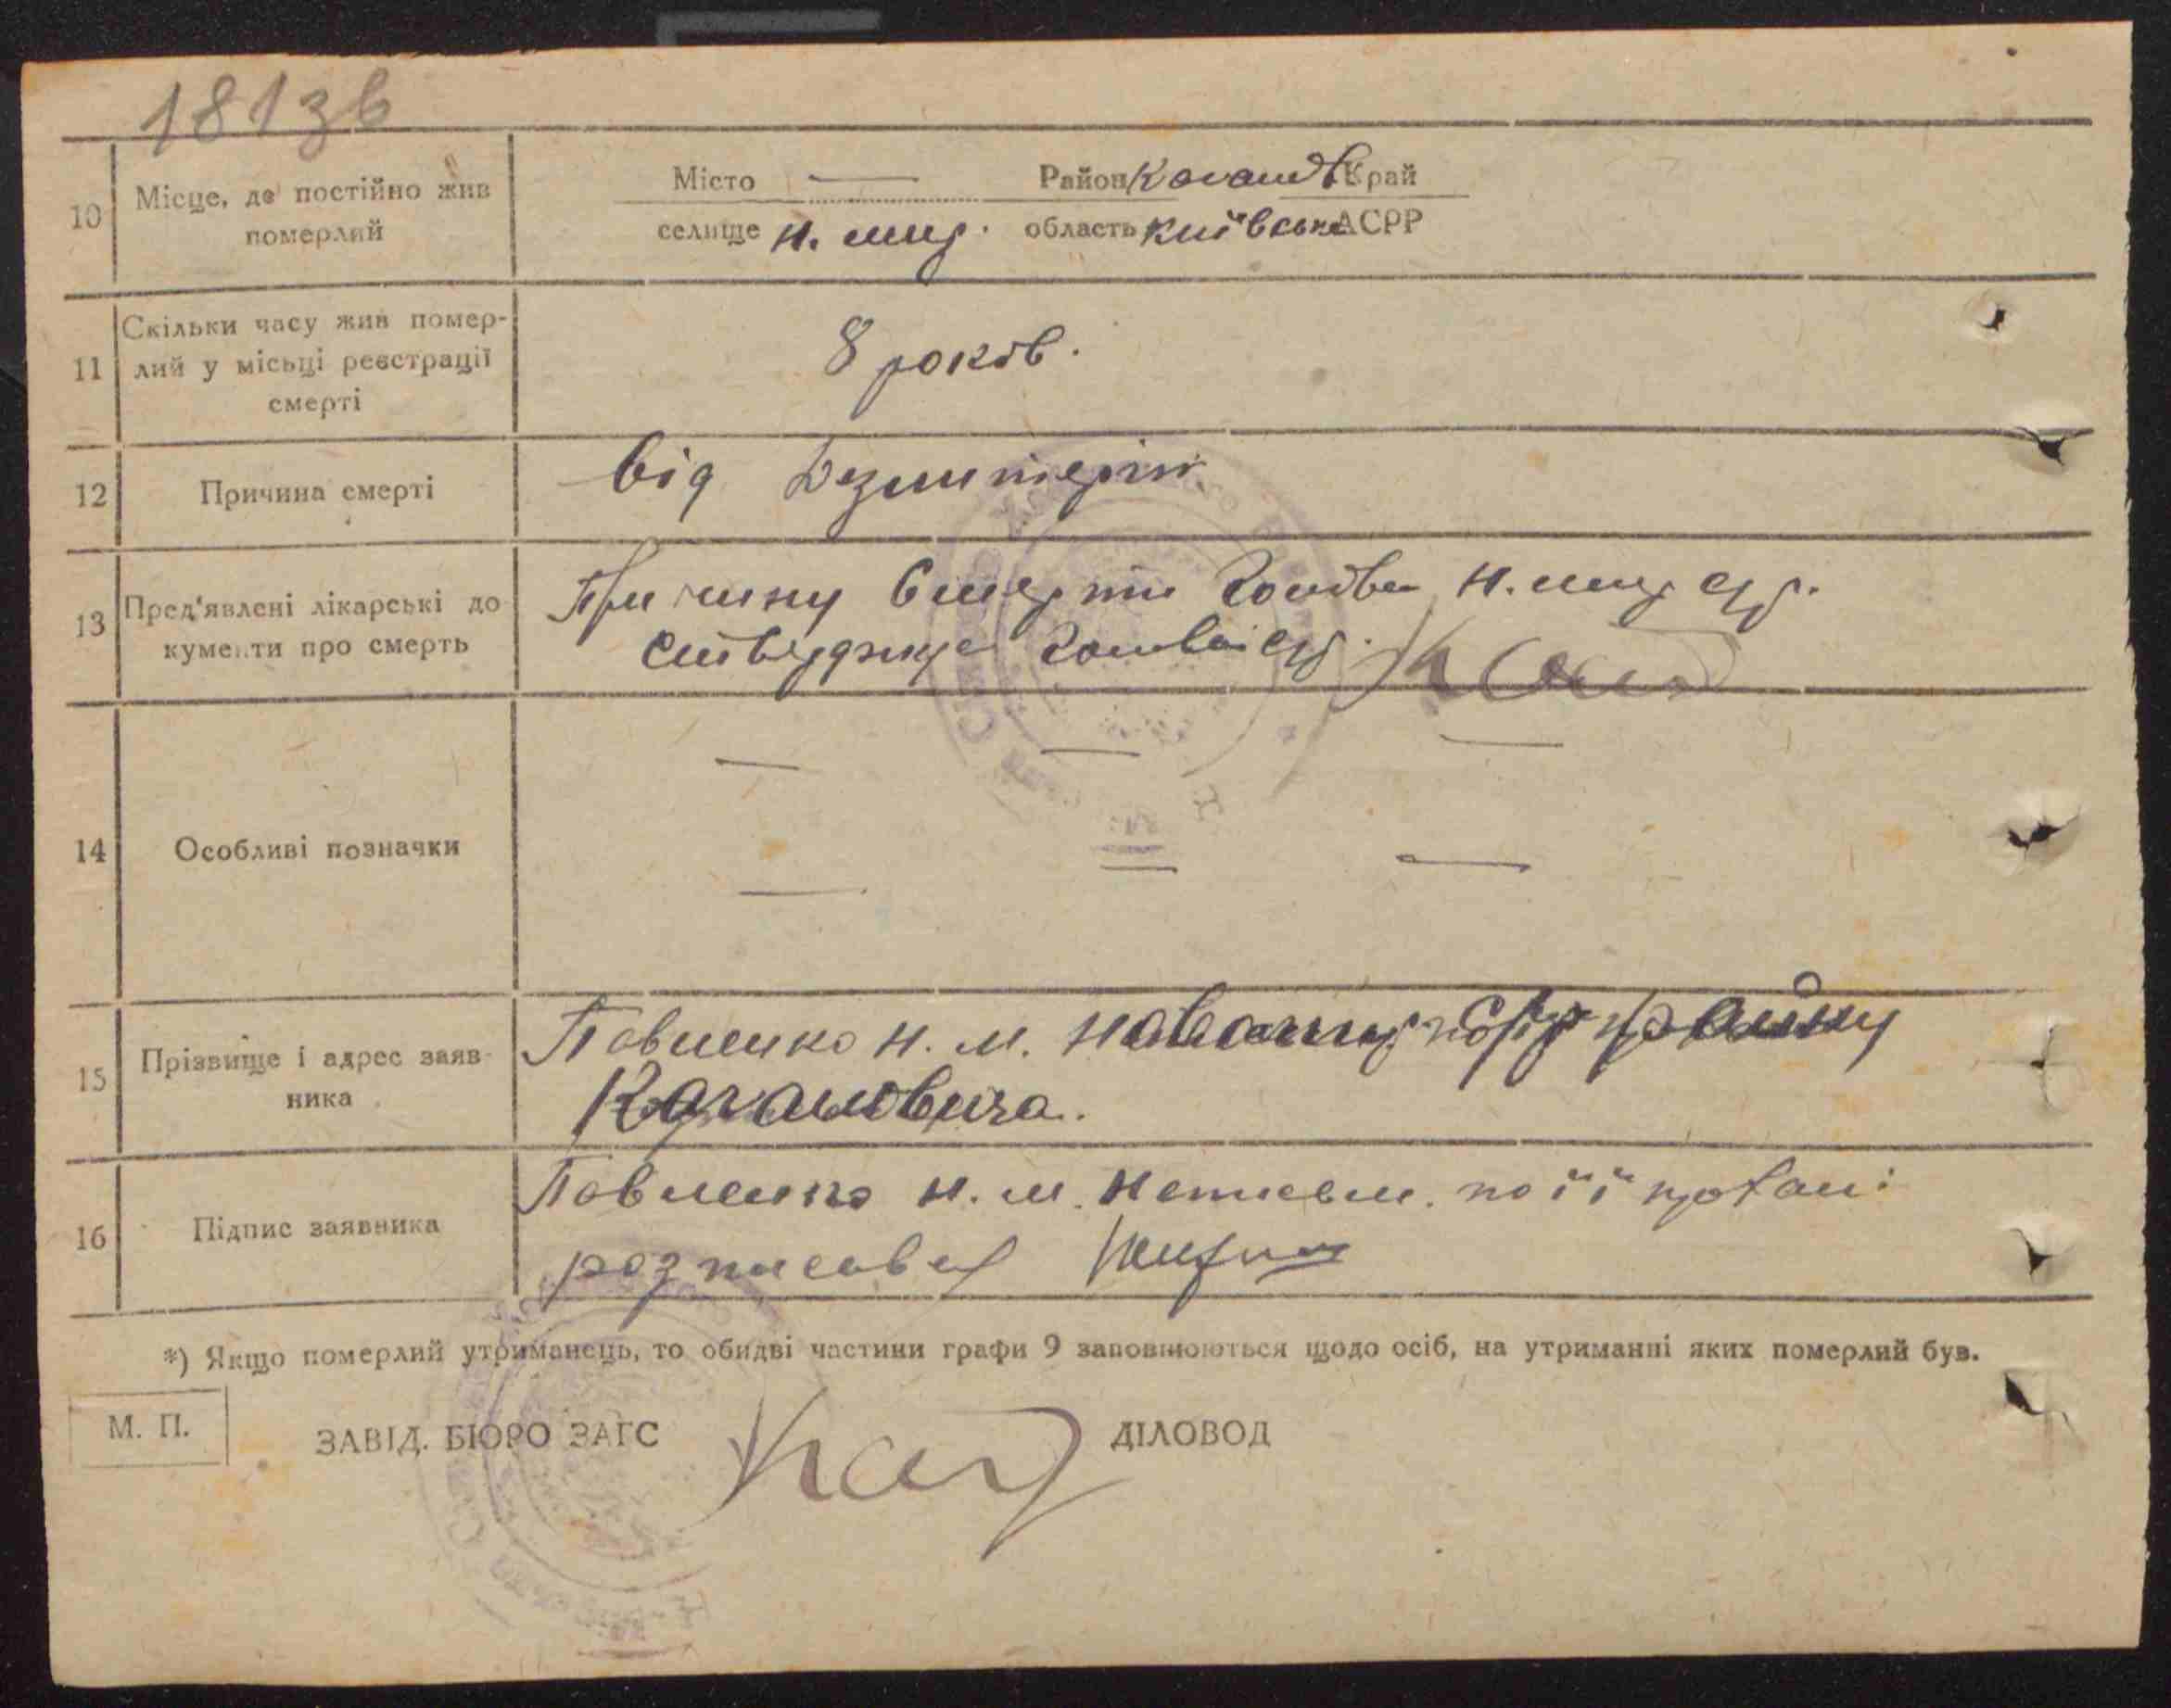 181зв
10 Місце, де постійно жив померлий
Місто — Район Каганов Край
селище Н. мир. область Київська АСРР
11 Скільки часу жив помер-
лий у місьці реєстрації
смерті
8 років.
12 Причина смерті
від Дезинтерії
13 Пред'явлені лікарські до
кументи про смерть
Причину смерти голова Н. мир с/р.
стверджує голова с/р.
14 Особливі позначки
— — —
— — —
15 Прізвище і адрес заяв-
ника
Павленко Н. М. району
Кагановича.
16 Підпис заявника
Павленко Н. М. неписьм. по її прохані
розписався
*) Якщо померлий утриманець, то обидві частини графи 9 заповнюються щодо осіб, на утриманні яких померлий був.
М. П.
ЗАВІД. БЮРО ЗАГС ДІЛОВОД